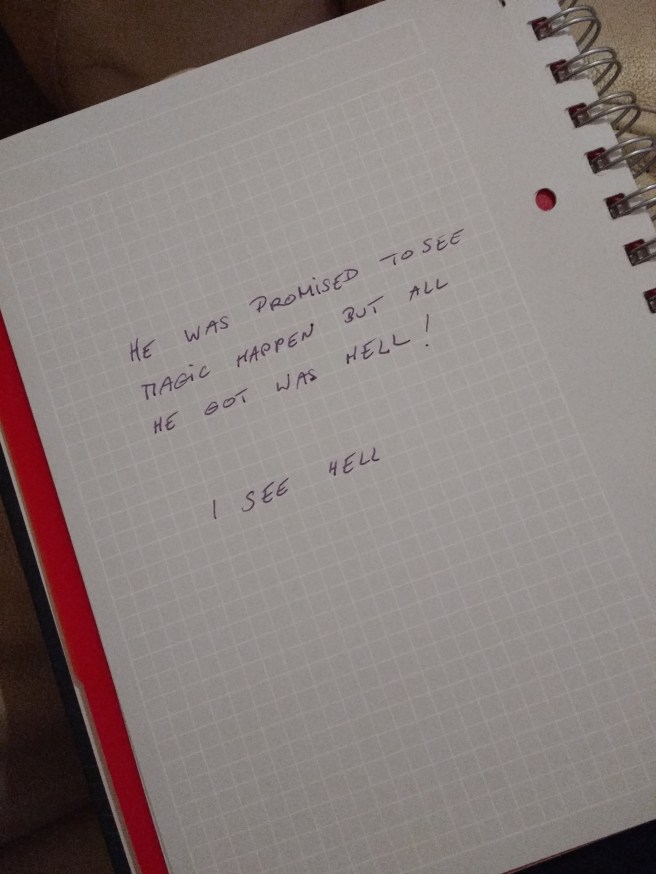 HE WAS PROMISED TO SEE
MAGIC HAPPEN BUT ALL
HE GOT WAS HELL!
I SEE HELL